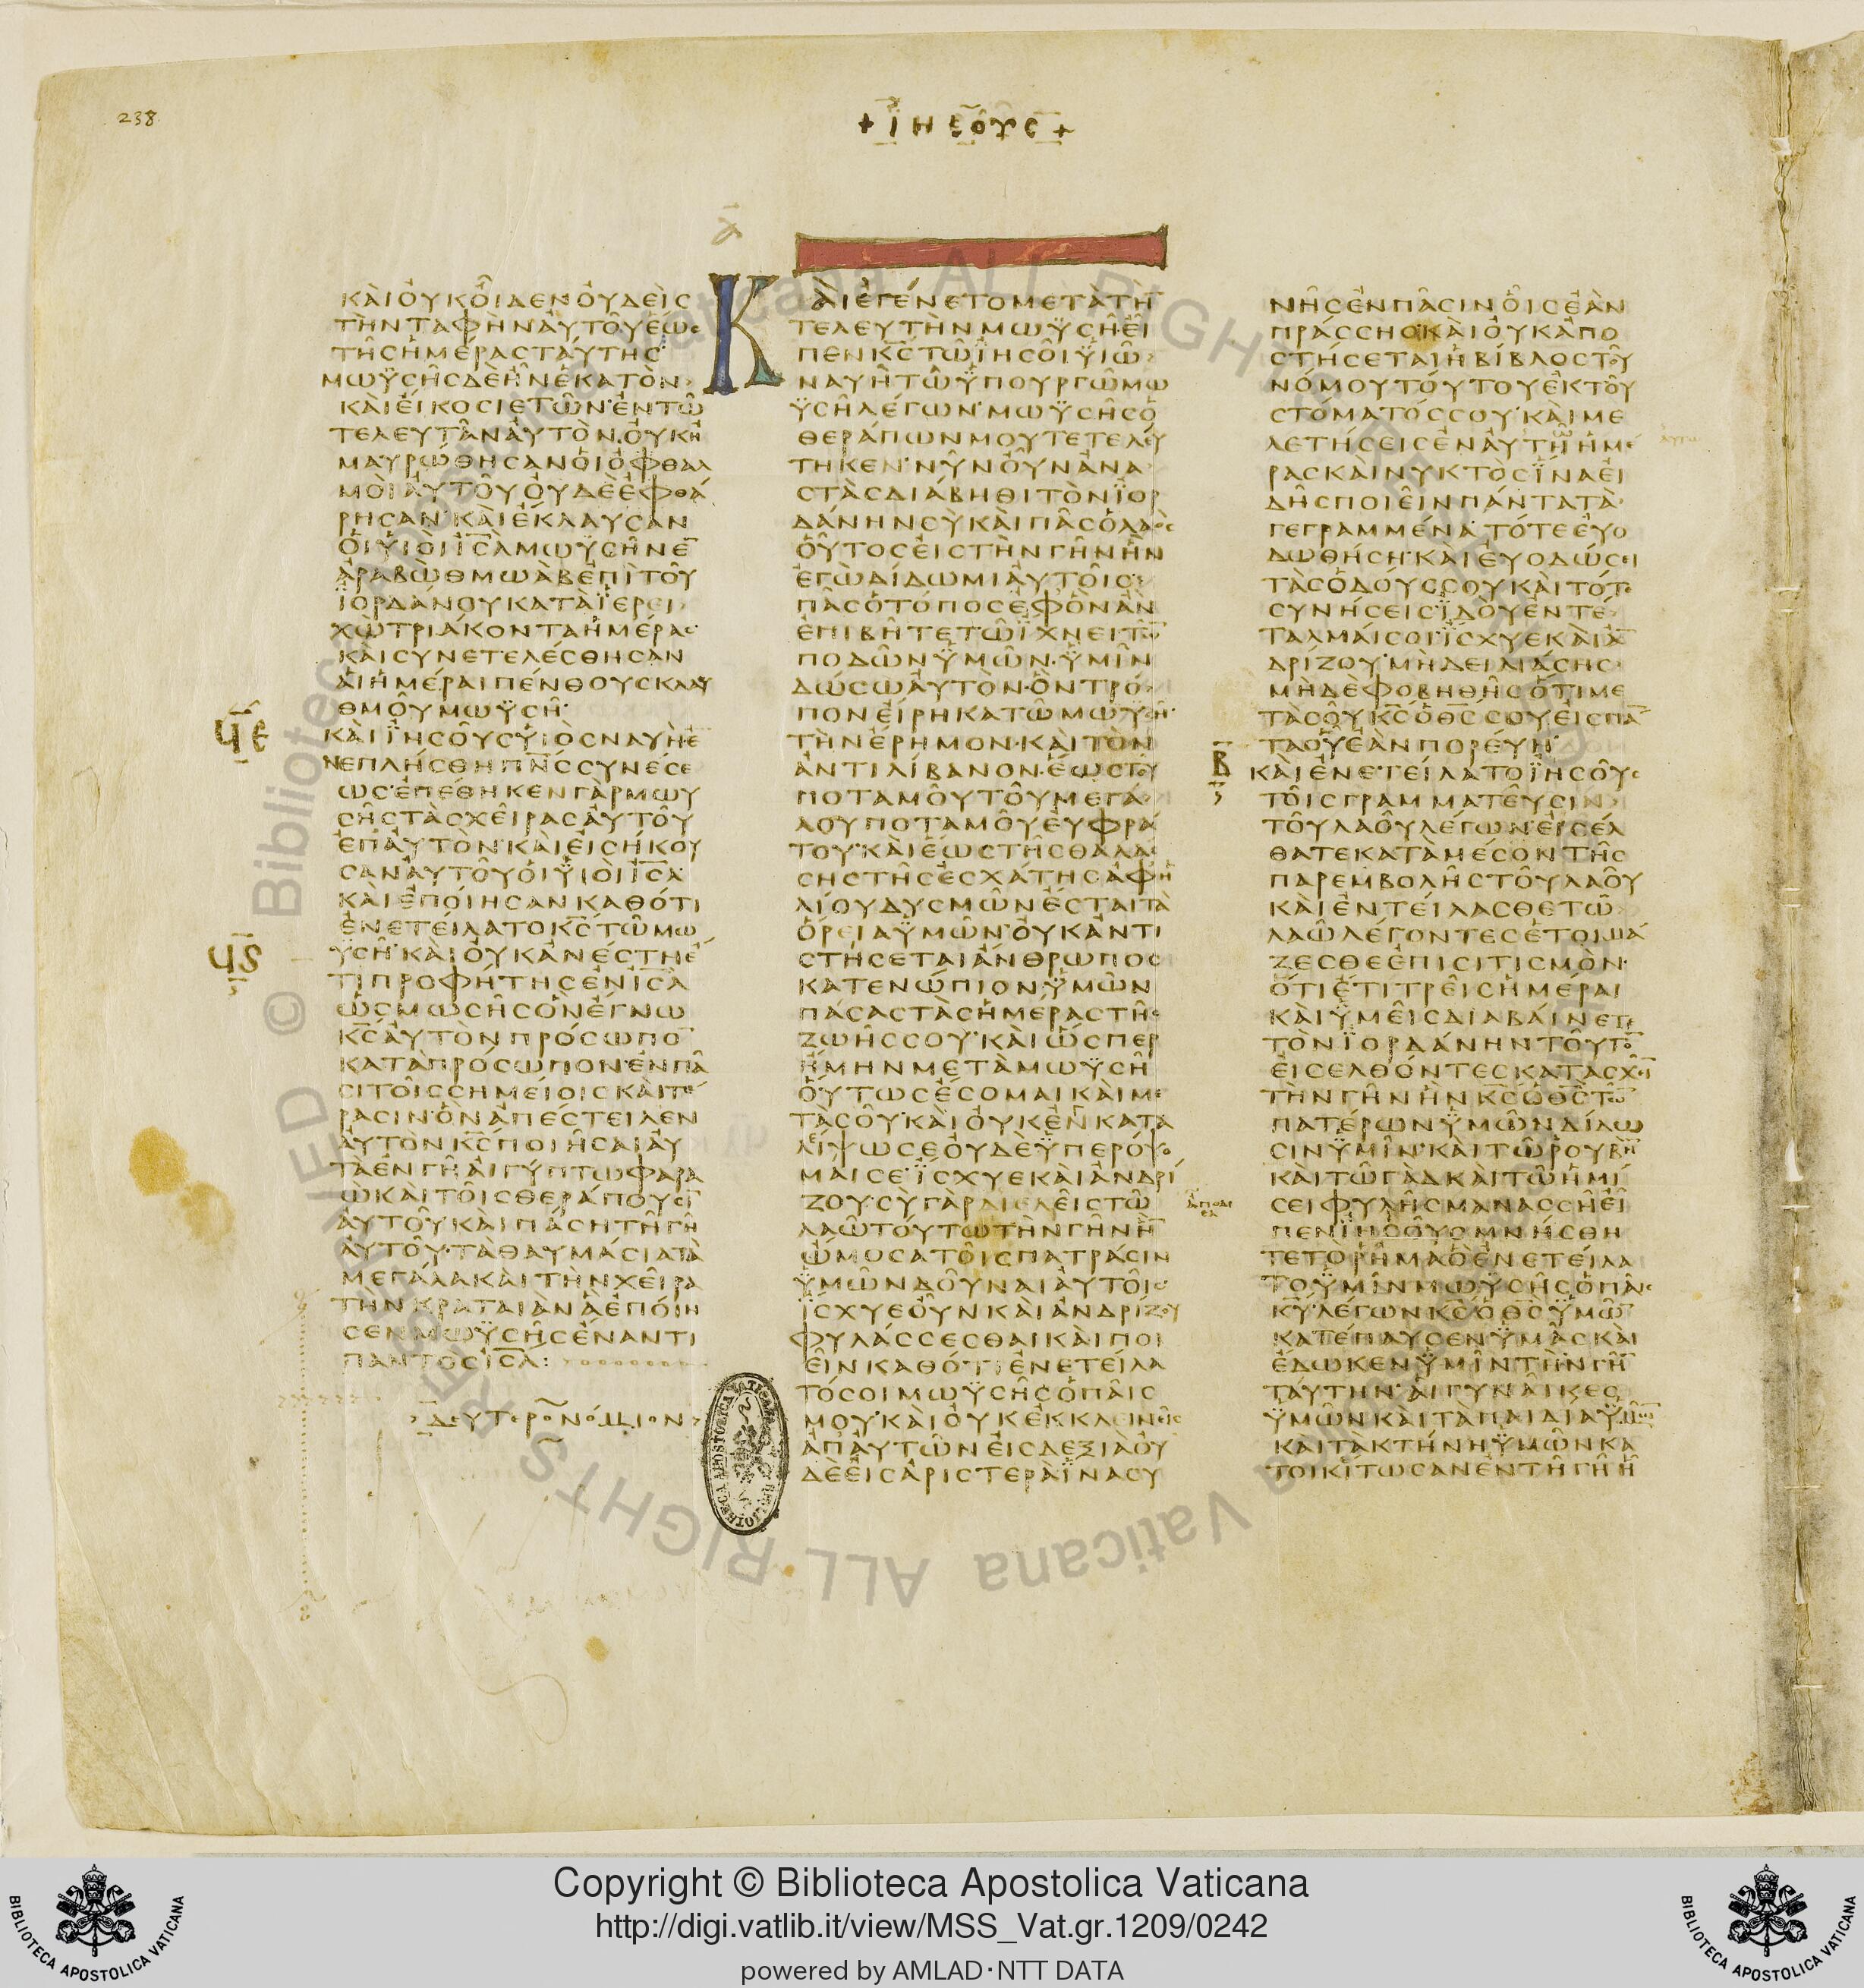 238
+ ΙΗϹΟΥϹ +
Α
ΚΑΙ ΟΥΚ ΟΙΔΕΝ ΟΥΔΕΙϹ
ΤΗΝ ΤΑΦΗΝ ΑΥΤΟΥ ΕΩϹ
ΤΗϹ ΗΜΕΡΑϹ ΤΑΥΤΗϹ
ΜΩΥϹΗϹ ΔΕ ΗΝ ΕΚΑΤΟΝ
ΚΑΙ ΕΙΚΟϹΙ ΕΤΩΝ ΕΝ ΤΩ
ΤΕΛΕΥΤΑΝ ΑΥΤΟΝ ΟΥΚ Η
ΜΑΥΡΩΘΗϹΑΝ ΟΙ ΟΦΘΑΛ
ΜΟΙ ΑΥΤΟΥ ΟΥΔΕ ΕΦΘΑ
ΡΗϹΑΝ ΚΑΙ ΕΚΛΑΥϹΑΝ
ΟΙ ΥΙΟΙ ΙϹΛ ΜΩΥϹΗΝ Ε̅
ΑΡΑΒΩΘ ΜΩΑΒ ΕΠΙ ΤΟΥ
ΙΟΡΔΑΝΟΥ ΚΑΤΑ ΙΕΡΕΙ
ΧΩ ΤΡΙΑΚΟΝΤΑ ΗΜΕΡΑϹ
ΚΑΙ ϹΥΝΕΤΕΛΕϹΘΗϹΑΝ
ΑΙ ΗΜΕΡΑΙ ΠΕΝΘΟΥϹ ΚΛΑΥ
ΘΜΟΥ ΜΩΥϹΗ
ϤΕ
ΚΑΙ ΙΗϹΟΥϹ ΥΙΟϹ ΝΑΥΗ Ε
ΝΕΠΛΗϹΘΗ ΠΝϹ ϹΥΝΕϹΕ
ΩϹ ΕΠΕΘΗΚΕΝ ΓΑΡ ΜΩΥ
ϹΗϹ ΤΑϹ ΧΕΙΡΑϹ ΑΥΤΟΥ
ΕΠ ΑΥΤΟΝ ΚΑΙ ΕΙϹΗΚΟΥ
ϹΑΝ ΑΥΤΟΥ ΟΙ ΥΙΟΙ ΙϹΛ
ΚΑΙ ΕΠΟΙΗϹΑΝ ΚΑΘΟΤΙ
ΕΝΕΤΕΙΛΑΤΟ ΚϹ ΤΩ ΜΩ
ϤϚ
ΥϹΗ ΚΑΙ ΟΥΚ ΑΝΕϹΤΗ Ε
ΤΙ ΠΡΟΦΗΤΗϹ ΕΝ ΙϹΛ
ΩϹ ΜΩϹΗϹ ΟΝ ΕΓΝΩ
ΚϹ ΑΥΤΟΝ ΠΡΟϹΩΠΟ̅
ΚΑΤΑ ΠΡΟϹΩΠΟΝ ΕΝ ΠΑ
ϹΙ ΤΟΙϹ ϹΗΜΕΙΟΙϹ ΚΑΙ ΤΕ
ΡΑϹΙΝ ΟΝ ΑΠΕϹΤΕΙΛΕΝ
ΑΥΤΟΝ ΚϹ ΠΟΙΗϹΑΙ ΑΥ
ΤΑ ΕΝ ΓΗ ΑΙΓΥΠΤΩ ΦΑΡΑ
Ω ΚΑΙ ΤΟΙϹ ΘΕΡΑΠΟΥϹΙ
ΑΥΤΟΥ ΚΑΙ ΠΑϹΗ ΤΗ ΓΗ
ΑΥΤΟΥ ΤΑ ΘΑΥΜΑϹΙΑ ΤΑ
ΜΕΓΑΛΑ ΚΑΙ ΤΗΝ ΧΕΙΡΑ
ΤΗΝ ΚΡΑΤΑΙΑΝ Α ΕΠΟΙΗ
ϹΕΝ ΜΩΥϹΗϹ ΕΝΑΝΤΙ
ΠΑΝΤΟϹ ΙϹΛ:
ΔΕΥΤΕΡΟΝΟΜΙΟΝ
ΚΑΙ ΕΓΕΝΕΤΟ ΜΕΤΑ ΤΗ̅
ΤΕΛΕΥΤΗΝ ΜΩΥϹΗ ΕΙ
ΠΕΝ ΚϹ ΤΩ ΙΗϹΟΙ ΥΙΩ
ΝΑΥΗ ΤΩ ΥΠΟΥΡΓΩ ΜΩ
ΥϹΗ ΛΕΓΩΝ ΜΩΥϹΗϹ Ο
ΘΕΡΑΠΩΝ ΜΟΥ ΤΕΤΕΛΕΥ
ΤΗΚΕΝ ΝΥΝ ΟΥΝ ΑΝΑ
ϹΤΑϹ ΔΙΑΒΗΘΙ ΤΟΝ ΙΟΡ
ΔΑΝΗΝ ϹΥ ΚΑΙ ΠΑϹ Ο ΛΑΟϹ
ΟΥΤΟϹ ΕΙϹ ΤΗΝ ΓΗΝ ΗΝ
ΕΓΩ ΔΙΔΩΜΙ ΑΥΤΟΙϹ
ΠΑϹ Ο ΤΟΠΟϹ ΕΦ ΟΝ ΑΝ
ΕΠΙΒΗΤΕ ΤΩ ΙΧΝΕΙ ΤΩ̅
ΠΟΔΩΝ ΥΜΩΝ ΥΜΙΝ
ΔΩϹΩ ΑΥΤΟΝ ΟΝ ΤΡΟ
ΠΟΝ ΕΙΡΗΚΑ ΤΩ ΜΩΥϹΗ
ΤΗΝ ΕΡΗΜΟΝ ΚΑΙ ΤΟΝ
ΑΝΤΙΛΙΒΑΝΟΝ ΕΩϹ ΤΟΥ
ΠΟΤΑΜΟΥ ΤΟΥ ΜΕΓΑ
ΛΟΥ ΠΟΤΑΜΟΥ ΕΥΦΡΑ
ΤΟΥ ΚΑΙ ΕΩϹ ΤΗϹ ΘΑΛΑϹ
ϹΗϹ ΤΗϹ ΕϹΧΑΤΗϹ ΑΦ Η
ΛΙΟΥ ΔΥϹΜΩΝ ΕϹΤΑΙ ΤΑ
ΟΡΕΙΑ ΥΜΩΝ ΟΥΚ ΑΝΤΙ
ϹΤΗϹΕΤΑΙ ΑΝΘΡΩΠΟϹ
ΚΑΤΕΝΩΠΙΟΝ ΥΜΩΝ
ΠΑϹΑϹ ΤΑϹ ΗΜΕΡΑϹ ΤΗϹ
ΖΩΗϹ ϹΟΥ ΚΑΙ ΩϹΠΕΡ
ΗΜΗΝ ΜΕΤΑ ΜΩΥϹΗ
ΟΥΤΩϹ ΕϹΟΜΑΙ ΚΑΙ ΜΕ
ΤΑ ϹΟΥ ΚΑΙ ΟΥΚ ΕΝΚΑΤΑ
ΛΙΨΩ ϹΕ ΟΥΔΕ ΥΠΕΡΟΨΟ
ΜΑΙ ϹΕ ΙϹΧΥΕ ΚΑΙ ΑΝΔΡΙ
ΖΟΥ ϹΥ ΓΑΡ ΔΙΕΛΕΙϹ ΤΩ
ΛΑΩ ΤΟΥΤΩ ΤΗΝ ΓΗΝ Η̅
ΩΜΟϹΑ ΤΟΙϹ ΠΑΤΡΑϹΙΝ
ΥΜΩΝ ΔΟΥΝΑΙ ΑΥΤΟΙϹ
ΙϹΧΥΕ ΟΥΝ ΚΑΙ ΑΝΔΡΙΖΟΥ
ΦΥΛΑϹϹΕϹΘΑΙ ΚΑΙ ΠΟΙ
ΕΙΝ ΚΑΘΟΤΙ ΕΝΕΤΕΙΛΑ
ΤΟ ϹΟΙ ΜΩΥϹΗϹ Ο ΠΑΙϹ
ΜΟΥ ΚΑΙ ΟΥΚ ΕΚΚΛΕΙΝΕΙϹ
ΑΠ ΑΥΤΩΝ ΕΙϹ ΔΕΞΙΑ ΟΥ
ΔΕ ΕΙϹ ΑΡΙϹΤΕΡΑ ΙΝΑ ϹΥ
ΝΗϹ ΕΝ ΠΑϹΙΝ ΟΙϹ ΕΑΝ
ΠΡΑϹϹΗϹ ΚΑΙ ΟΥΚ ΑΠΟ
ϹΤΗϹΕΤΑΙ Η ΒΙΒΛΟϹ ΤΟΥ
ΝΟΜΟΥ ΤΟΥΤΟΥ ΕΚ ΤΟΥ
ϹΤΟΜΑΤΟϹ ϹΟΥ ΚΑΙ ΜΕ
ΛΕΤΗϹΕΙϹ ΕΝ ΑΥΤΗ ΗΜΕ
ΡΑϹ ΚΑΙ ΝΥΚΤΟϹ ΙΝΑ ΕΙ
ΔΗϹ ΠΟΙΕΙΝ ΠΑΝΤΑ ΤΑ
ΓΕΓΡΑΜΜΕΝΑ ΤΟΤΕ ΕΥΟ
ΔΩΘΗϹΗ ΚΑΙ ΕΥΟΔΩϹΕΙ
ΤΑϹ ΟΔΟΥϹ ϹΟΥ ΚΑΙ ΤΟΤΕ
ϹΥΝΗϹΕΙϹ ΙΔΟΥ ΕΝΤΕ
ΤΑΛΜΑΙ ϹΟΙ ΙϹΧΥΕ ΚΑΙ Α̅
ΔΡΙΖΟΥ ΜΗ ΔΕΙΛΙΑϹΗϹ
ΜΗΔΕ ΦΟΒΗΘΗϹ ΟΤΙ ΜΕ
ΤΑ ϹΟΥ ΚϹ Ο ΘϹ ϹΟΥ ΕΙϹ ΠΑ̅
ΤΑ ΟΥ ΕΑΝ ΠΟΡΕΥΗ
Β
ΚΑΙ ΕΝΕΤΕΙΛΑΤΟ ΙΗϹΟΥϹ
ΤΟΙϹ ΓΡΑΜΜΑΤΕΥϹΙΝ
ΤΟΥ ΛΑΟΥ ΛΕΓΩΝ ΕΙϹΕΛ
ΘΑΤΕ ΚΑΤΑ ΜΕϹΟΝ ΤΗϹ
ΠΑΡΕΜΒΟΛΗϹ ΤΟΥ ΛΑΟΥ
ΚΑΙ ΕΝΤΕΙΛΑϹΘΕ ΤΩ
ΛΑΩ ΛΕΓΟΝΤΕϹ ΕΤΟΙΜΑ
ΖΕϹΘΕ ΕΠΙϹΙΤΙϹΜΟΝ
ΟΤΙ ΕΤΙ ΤΡΕΙϹ ΗΜΕΡΑΙ
ΚΑΙ ΥΜΕΙϹ ΔΙΑΒΑΙΝΕΤΕ
ΤΟΝ ΙΟΡΔΑΝΗΝ ΤΟΥΤΟ̅
ΕΙϹΕΛΘΟΝΤΕϹ ΚΑΤΑϹΧΕΙ̅
ΤΗΝ ΓΗΝ ΗΝ ΚϹ Ο ΘϹ ΤΩ̅
ΠΑΤΕΡΩΝ ΥΜΩΝ ΔΙΔΩ
ϹΙΝ ΥΜΙΝ ΚΑΙ ΤΩ ΡΟΥΒΗ̅
ΚΑΙ ΤΩ ΓΑΔ ΚΑΙ ΤΩ ΗΜΙ
ϹΕΙ ΦΥΛΗϹ ΜΑΝΑϹϹΗ ΕΙ
ΠΕΝ ΙΗϹΟΥϹ ΜΝΗϹΘΗ
ΤΕ ΤΟ ΡΗΜΑ Ο ΕΝΕΤΕΙΛΑ
ΤΟ ΥΜΙΝ ΜΩΥϹΗϹ Ο ΠΑΙϹ
ΚΥ ΛΕΓΩΝ ΚϹ Ο ΘϹ ΥΜΩ̅
ΚΑΤΕΠΑΥϹΕΝ ΥΜΑϹ ΚΑΙ
ΕΔΩΚΕΝ ΥΜΙΝ ΤΗΝ ΓΗ̅
ΤΑΥΤΗΝ ΑΙ ΓΥΝΑΙΚΕϹ
ΥΜΩΝ ΚΑΙ ΤΑ ΠΑΙΔΙΑ ΥΜΩ̅
ΚΑΙ ΤΑ ΚΤΗΝΗ ΥΜΩΝ ΚΑ
ΤΟΙΚΙΤΩϹΑΝ ΕΝ ΤΗ ΓΗ Η
Copyright © Biblioteca Apostolica Vaticana
http://digi.vatlib.it/view/MSS_Vat.gr.1209/0242
powered by AMLAD·NTT DATA
BIBLIOTECA APOSTOLICA VATICANA
BIBLIOTECA APOSTOLICA VATICANA